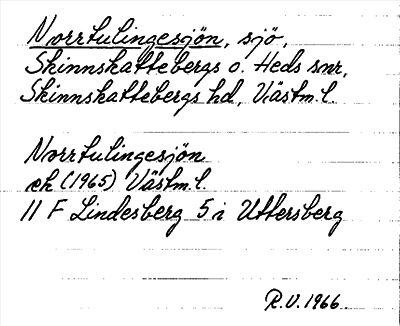 Norrtulingesjön, sjö,
Skinnskattebergs o. Heds snr,
Skinnskattebergs hd, Västm.l.
Norrtulingesjön
ek (1965) Västm.l.
11 F Lindesberg 5 i Uttersberg
R.V. 1966.